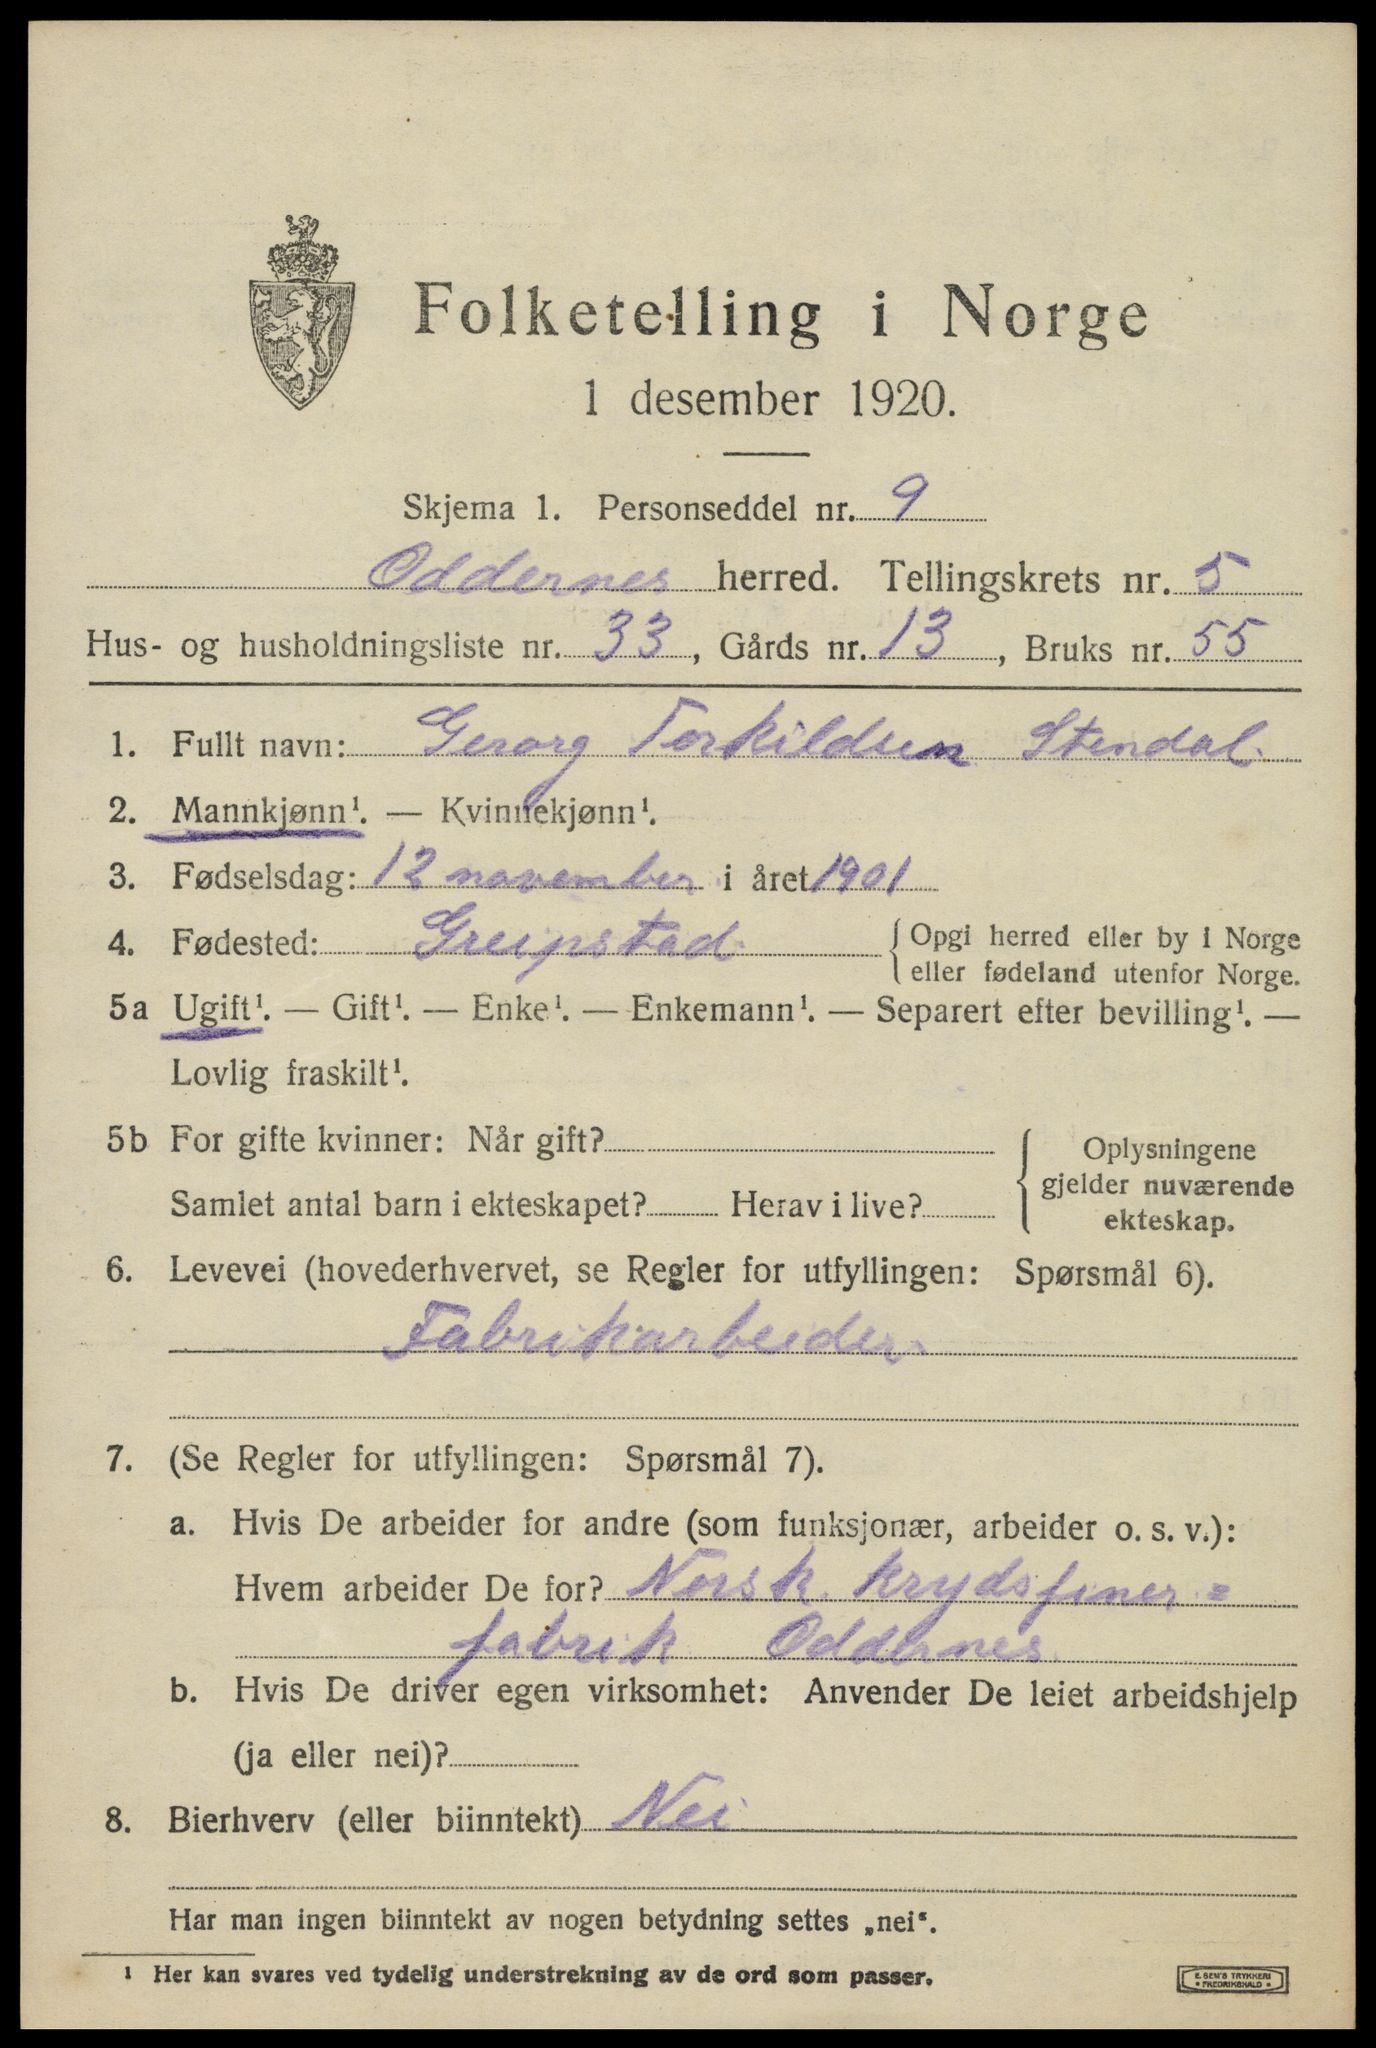 Folketelling i Norge
1 desember 1920.
Skjema 1. Personseddel nr. 9
Oddernes herred. Tellingskrets nr. 5
Hus- og husholdningsliste nr. 33, Gårds nr. 13, Bruks nr. 55
1. Fullt navn: Gerorg Torkildsen Stendal
2. Mannkjønn¹. — Kvinnekjønn¹.
3. Fødselsdag: 12 november i året 1901
4. Fødested: Greipstad { Opgi herred eller by i Norge
eller fødeland utenfor Norge.
5a Ugift¹. — Gift¹. — Enke¹. — Enkemann¹. — Separert efter bevilling¹. —
Lovlig fraskilt¹.
5b For gifte kvinner: Når gift?
Samlet antal barn i ekteskapet? Herav i live?
Oplysningene
gjelder nuværende
ekteskap.
6. Levevei (hovederhvervet, se Regler for utfyllingen: Spørsmål 6).
Fabrikarbeider
7. (Se Regler for utfyllingen: Spørsmål 7).
a. Hvis De arbeider for andre (som funksjonær, arbeider o. s. v.):
Hvem arbeider De for? Norsk krydsfiner=
fabrik Oddernes
b. Hvis De driver egen virksomhet: Anvender De leiet arbeidshjelp
(ja eller nei)?
8. Bierhverv (eller biinntekt) Nei
Har man ingen biinntekt av nogen betydning settes „nei“.
¹ Her kan svares ved tydelig understrekning av de ord som passer.
E. SEM'S TRYKKERI
• FREDRIKSHALD •